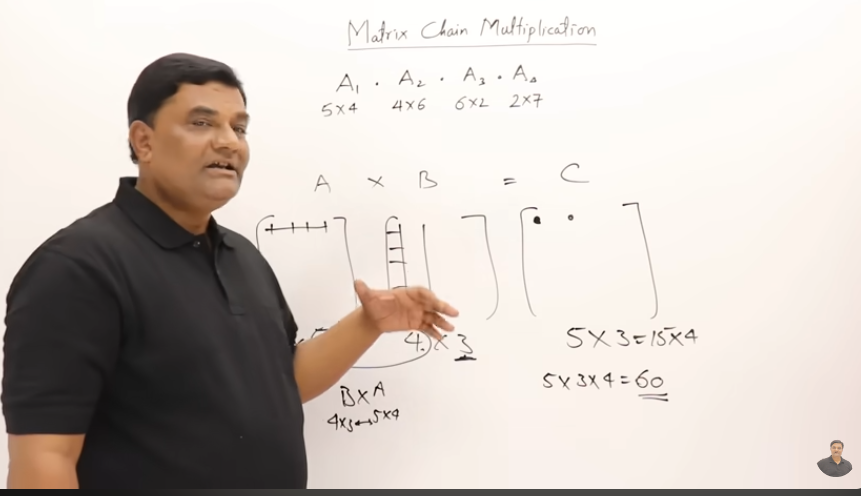 Matrix Chain Multiplication
A₁ · A₂ · A₃ · A₄
5×4 4×6 6×2 2×7
A × B = C
4 × 3 5×3=15×4
5×3×4=60
B×A
4×3↔5×4